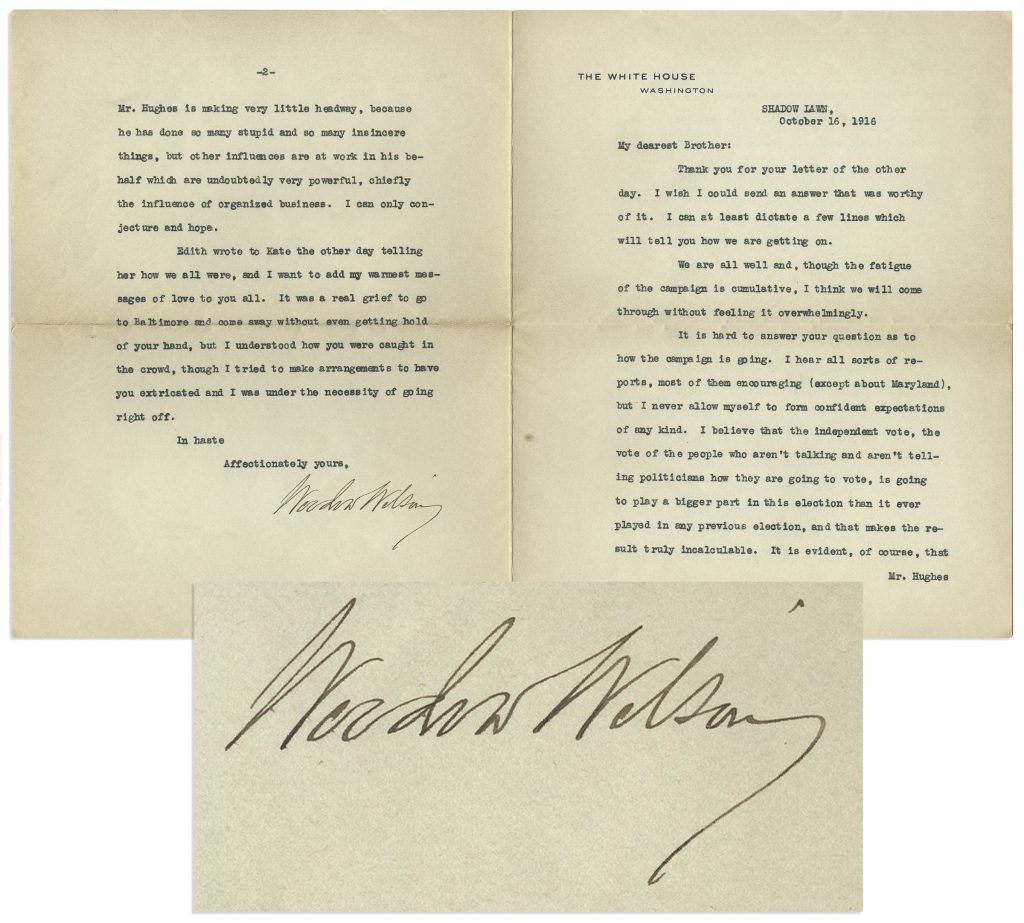 THE WHITE HOUSE
WASHINGTON
SHADOW LAWN,
October 16, 1916
My dearest Brother:
Thank you for your letter of the other
day. I wish I could send an answer that was worthy
of it. I can at least dictate a few lines which
will tell you how we are getting on.
We are all well and, though the fatigue
of the campaign is cumulative, I think we will come
through without feeling it overwhelmingly.
It is hard to answer your question as to
how the campaign is going. I hear all sorts of re-
ports, most of them encouraging (except about Maryland),
but I never allow myself to form confident expectations
of any kind. I believe that the independent vote, the
vote of the people who aren't talking and aren't tell-
ing politicians how they are going to vote, is going
to play a bigger part in this election than it ever
played in any previous election, and that makes the re-
sult truly incalculable. It is evident, of course, that
Mr. Hughes
-2-
Mr. Hughes is making very little headway, because
he has done so many stupid and so many insincere
things, but other influences are at work in his be-
half which are undoubtedly very powerful, chiefly
the influence of organized business. I can only con-
jecture and hope.
Edith wrote to Kate the other day telling
her how we all were, and I want to add my warmest mes-
sages of love to you all. It was a real grief to go
to Baltimore and come away without even getting hold
of your hand, but I understood how you were caught in
the crowd, though I tried to make arrangements to have
you extricated and I was under the necessity of going
right off.
In haste
Affectionately yours,
Woodrow Wilson
Woodrow Wilson